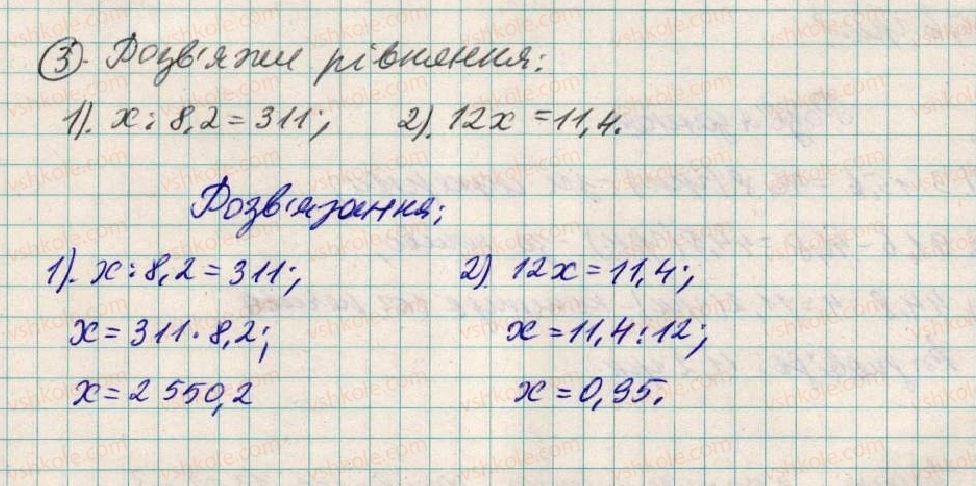 3. Розв'яжи рівняння:
1). x : 8,2 = 311; 2). 12x = 11,4.
Розв'язання:
1). x : 8,2 = 311; 2) 12x = 11,4;
x = 311 · 8,2; x = 11,4 : 12;
x = 2 550,2 x = 0,95.